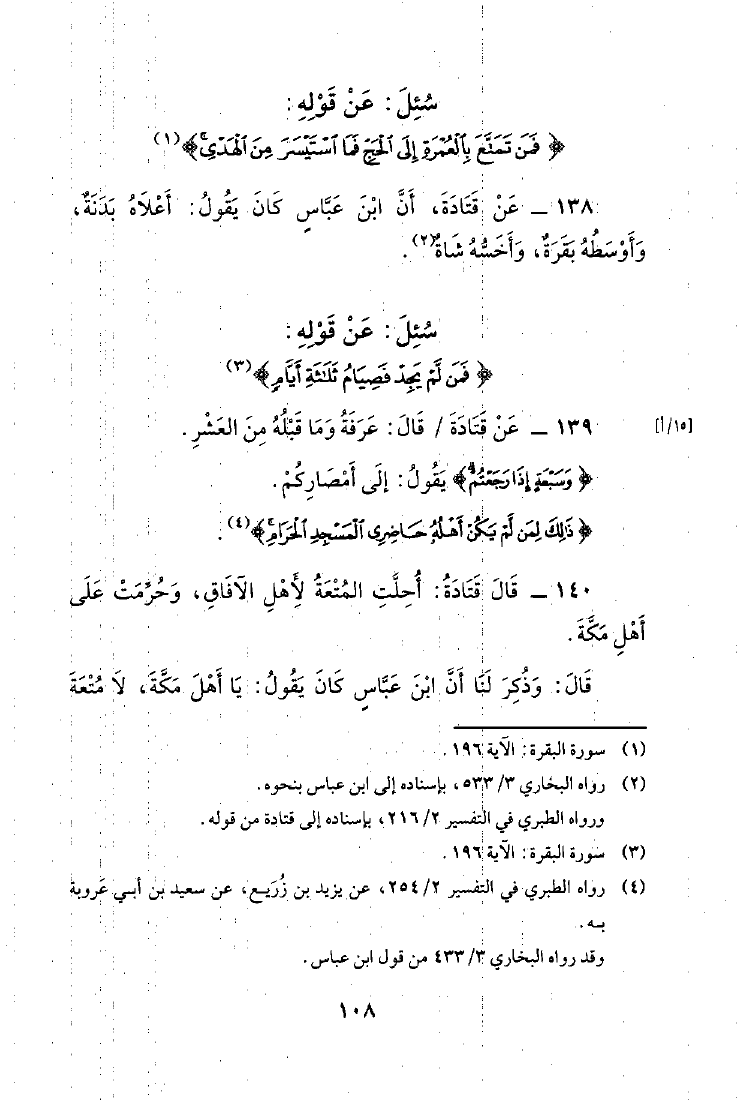 سُئِلَ: عَنْ قَوْلِهِ:
﴿ فَمَن تَمَتَّعَ بِٱلْعُمْرَةِ إِلَى ٱلْحَجِّ فَمَا ٱسْتَيْسَرَ مِنَ ٱلْهَدْىِ ۚ﴾(١)
١٣٨ ـ عَنْ قَتَادَةَ، أَنَّ ابْنَ عَبَّاسٍ كَانَ يَقُولُ: أَعْلَاهُ بَدَنَةٌ،
وَأَوْسَطُهُ بَقَرَةٌ، وَأَخَسُّهُ شَاةٌ(٢).
سُئِلَ: عَنْ قَوْلِهِ:
﴿ فَمَن لَّمْ يَجِدْ فَصِيَامُ ثَلَـٰثَةِ أَيَّامٍ ﴾(٣)
١٣٩ ـ عَنْ قَتَادَةَ / قَالَ: عَرَفَةُ وَمَا قَبْلُهُ مِنَ العَشْرِ. [١٥/أ]
﴿ وَسَبْعَةٍ إِذَا رَجَعْتُمْ ۗ﴾ يَقُولُ: إِلَى أَمْصَارِكُمْ.
﴿ ذَٰلِكَ لِمَن لَّمْ يَكُنْ أَهْلُهُ حَاضِرِى ٱلْمَسْجِدِ ٱلْحَرَامِ ۚ﴾(٤).
١٤٠ ـ قَالَ قَتَادَةُ: أُحِلَّتِ المُتْعَةُ لِأَهْلِ الآفَاقِ، وَحُرِّمَتْ عَلَى
أَهْلِ مَكَّةَ.
قَالَ: وَذُكِرَ لَنَا أَنَّ ابْنَ عَبَّاسٍ كَانَ يَقُولُ: يَا أَهْلَ مَكَّةَ، لَا مُتْعَةَ
(١) سورة البقرة: الآية ١٩٦.
(٢) رواه البخاري ٣/ ٥٣٣، بإسناده إلى ابن عباس بنحوه.
ورواه الطبري في التفسير ٢/ ٢١٦، بإسناده إلى قتادة من قوله.
(٣) سورة البقرة: الآية ١٩٦.
(٤) رواه الطبري في التفسير ٢/ ٢٥٤، عن يزيد بن زُرَيع، عن سعيد بن أبي عَروبة
به.
وقد رواه البخاري ٣/ ٤٣٣ من قول ابن عباس.
١٠٨